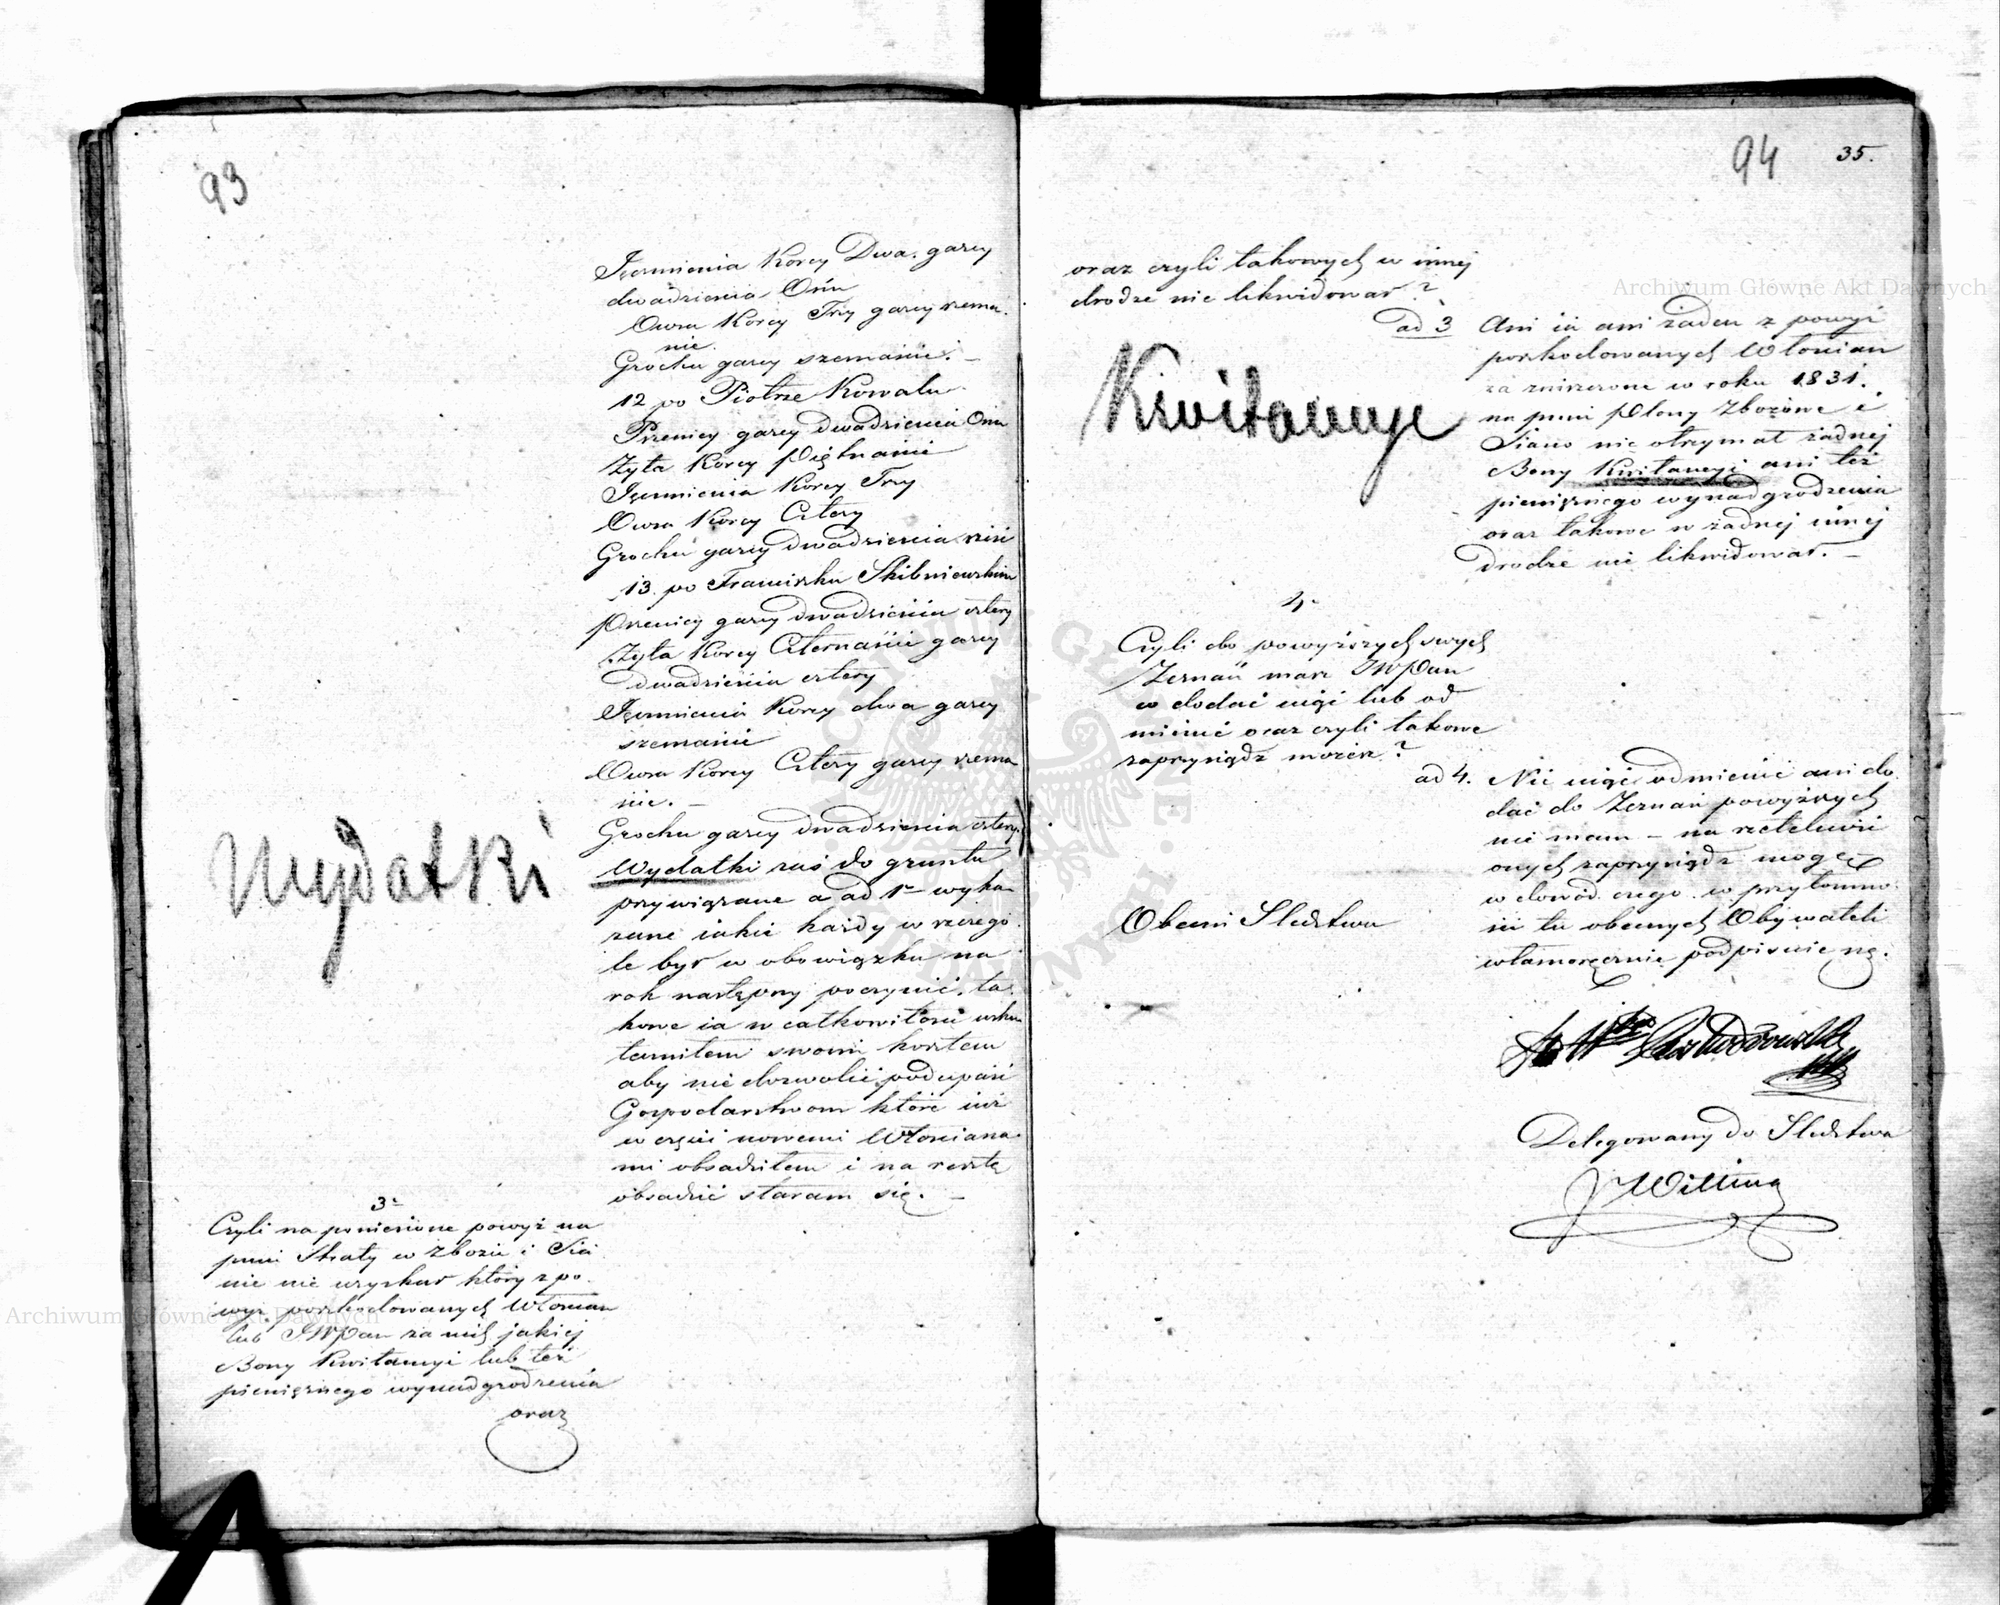 93
Jęczmienia Korcy Dwa, garcy
dwadzieścia Ośm
Owsa Korcy Trzy garcy szesna
ście.
Grochu garcy szesnaście. —
12 po Piotrze Kowalu
Pszenicy garcy dwadzieścia Ośm
Żyta Korcy Piętnaście
Jęczmienia Korcy Trzy
Owsa Korcy Cztery
Grochu garcy dwadzieścia
13. po Franciszku Skibniewskim
Pszenicy garcy dwadzieścia cztery
Żyta Korcy Czternaście garcy
dwadzieścia cztery
Jęczmienia Korcy dwa garcy
szesnaście
Owsa Korcy Cztery garcy szesna
ście. —
Grochu garcy dwadzieścia cztery.
Wydatki zaś do gruntu
przywiązane a ad 1º wyka
zane iakie każdy w szczegó
le był w obowiązku na
rok następny poczynić, ta
kowe ia w całkowitości usku
teczniłem swoim kosztem
aby nie dozwolić podupaść
Gospodarstwom które iuż
w części nowemi Włościana
mi obsadziłem i na resztę
obsadzić staram się. —
Wydatki
3º
Czyli na poniesione powyż na
pniu Straty w Zbożu i Sia
nie nie uzyskał który z po
wyż poszkodowanych Włościan
lub JWPan za nich jakiej
Bony Kwitancyi lub też
pieniężnego wynadgrodzenia
oraz
94 35.
oraz czyli takowych w innej
drodze nie likwidował?
ad 3 Ani ia ani żaden z powyż
poszkodowanych Włościan
za zniszczone w roku 1831.
na pniu Plony Zbożowe i
Siano nie otrzymał żadnej
Bony Kwitancyi ani też
pieniężnego wynadgrodzenia
oraz takowe w żadnej innej
drodze nie likwidował. —
Kwitancye
4º
Czyli do powyższych swych
Zeznań masz JWPan
co dodać iu lub od
mienić oraz czyli takowe
zaprzysiądz możesz?
ad 4. Nic odmienić ani do
dać do Zeznań powyższych
nie mam — na rzetelność
onych zaprzysiądz mogę
w dowód czego w przytomno
ści tu obecnych Obywateli
własnoręcznie podpisuię się.
Obecni Śledztwu
Delegowany do Śledztwa
J Witting
Archiwum Główne Akt Dawnych
Archiwum Główne Akt Dawnych